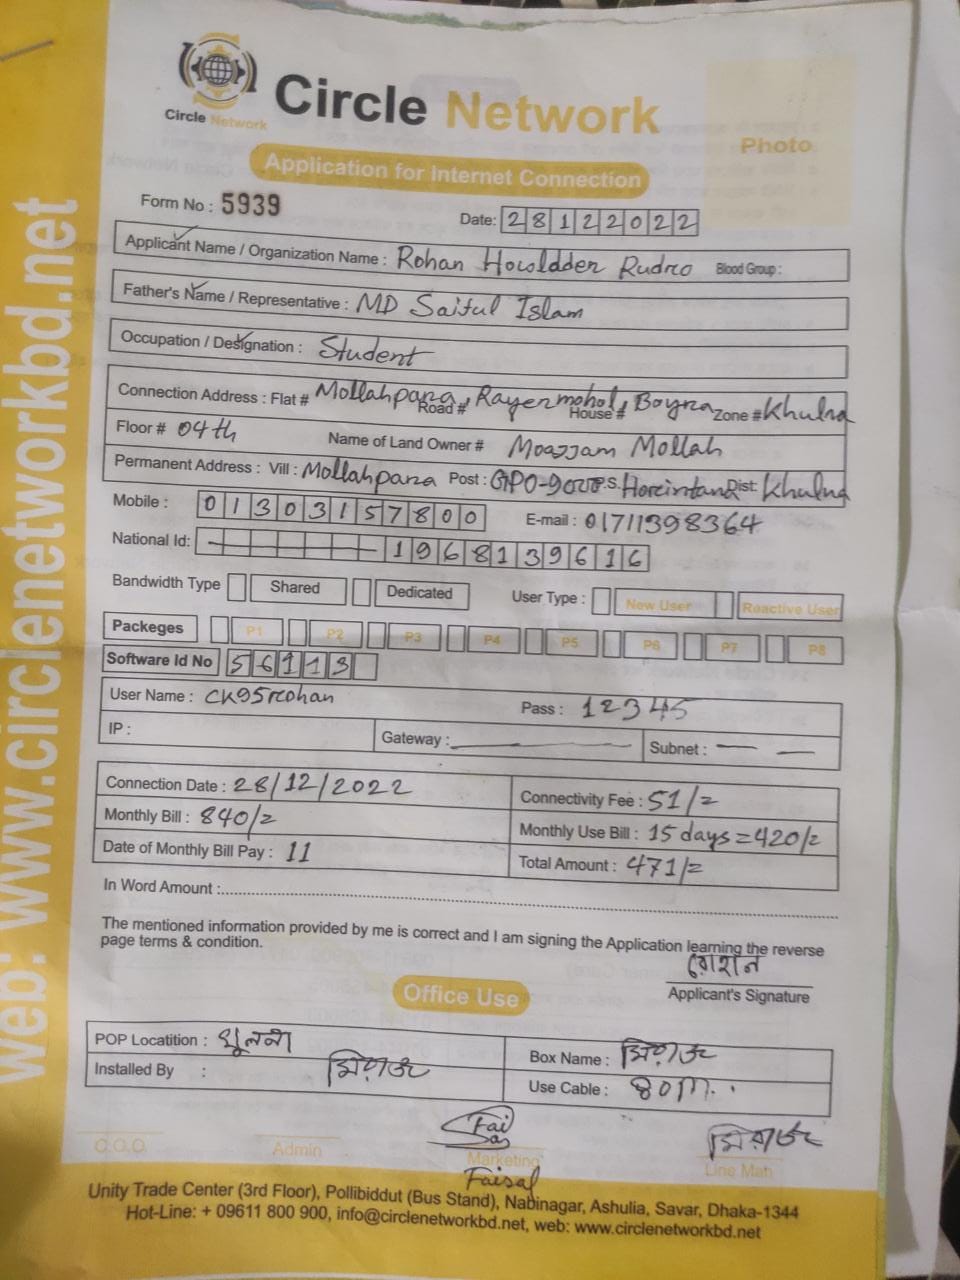 Circle Network
Circle Network
Photo
Application for Internet Connection
Form No : 5939
Date: 28122022
Applicant Name / Organization Name : Rohan Howldder Rudro Blood Group :
Father's Name / Representative : MD Saiful Islam
Occupation / Designation : Student
Connection Address : Flat # Mollahpara, Road # Rayermohol, House # Boyra Zone # Khulna
Floor # 04th Name of Land Owner # Moazzam Mollah
Permanent Address : Vill : Mollahpara Post : GPO-9000 P.S. Horeintana Dist: Khulna
Mobile : 01303157800 E-mail : 01711398364
National Id: 1968139616
Bandwidth Type Shared Dedicated User Type : New User Reactive User
Packeges P1 P2 P3 P4 P5 P6 P7 P8
Software Id No 56113
User Name : CK95rohan Pass : 12345
IP : Gateway : Subnet :
Connection Date : 28/12/2022 Connectivity Fee : 51/=
Monthly Bill : 840/= Monthly Use Bill : 15 days = 420/=
Date of Monthly Bill Pay : 11 Total Amount : 471/=
In Word Amount :
The mentioned information provided by me is correct and I am signing the Application learning the reverse
page terms & condition.
রোহান
Applicant's Signature
Office Use
POP Locatition : খুলনা Box Name : মিরাজ
Installed By : মিরাজ Use Cable : 80m.
Fai
Sa
মিরাজ
C.O.O. Admin Marketing Line Man
Faisal
Unity Trade Center (3rd Floor), Pollibiddut (Bus Stand), Nabinagar, Ashulia, Savar, Dhaka-1344
Hot-Line: + 09611 800 900, info@circlenetworkbd.net, web: www.circlenetworkbd.net
web: www.circlenetworkbd.net